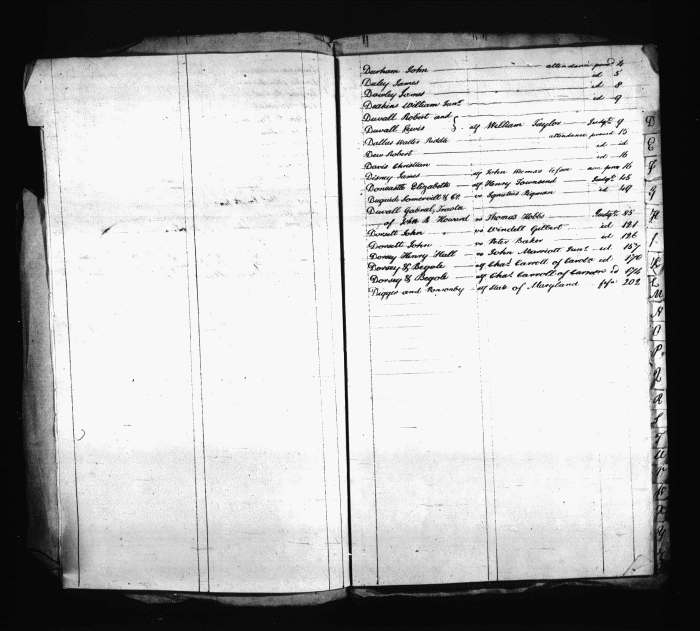 Durham John attendance proved 4
Duley James id 5
Dowley James id 8
Watkins William Junr. id 9
Duvall Robert and
Duvall Lewis } agt William Taylor Judgt. 9
Dallas Walter Riddle attendance proved 15
Dew Robert id id
Davis Christian id 16
Disney James agt John Thomas 16
Doncastle Elizabeth agt Henry Townsend Judgt. 45
Duguid Somervill & Co. vs Ignatius id 49
Duvall Gabriel, Trustee
of John B. Howard vs Thomas Hobbs Judgt. 85
Dorsett John vs Windell Gilbert id 121
Dorsett John vs Peter Baker id 126
Dorsey Henry Hall vs John Marriott Junr. id 157
Dorsey & Begole agt Chas. Carroll of Carrollo id 170
Dorsey & Begole agt Chas. Carroll of id 176
Digges and Ponsonby agt State of Maryland fifa 202
D
E
F
G
H
I
K
L
M
N
O
P
Q
R
S
T